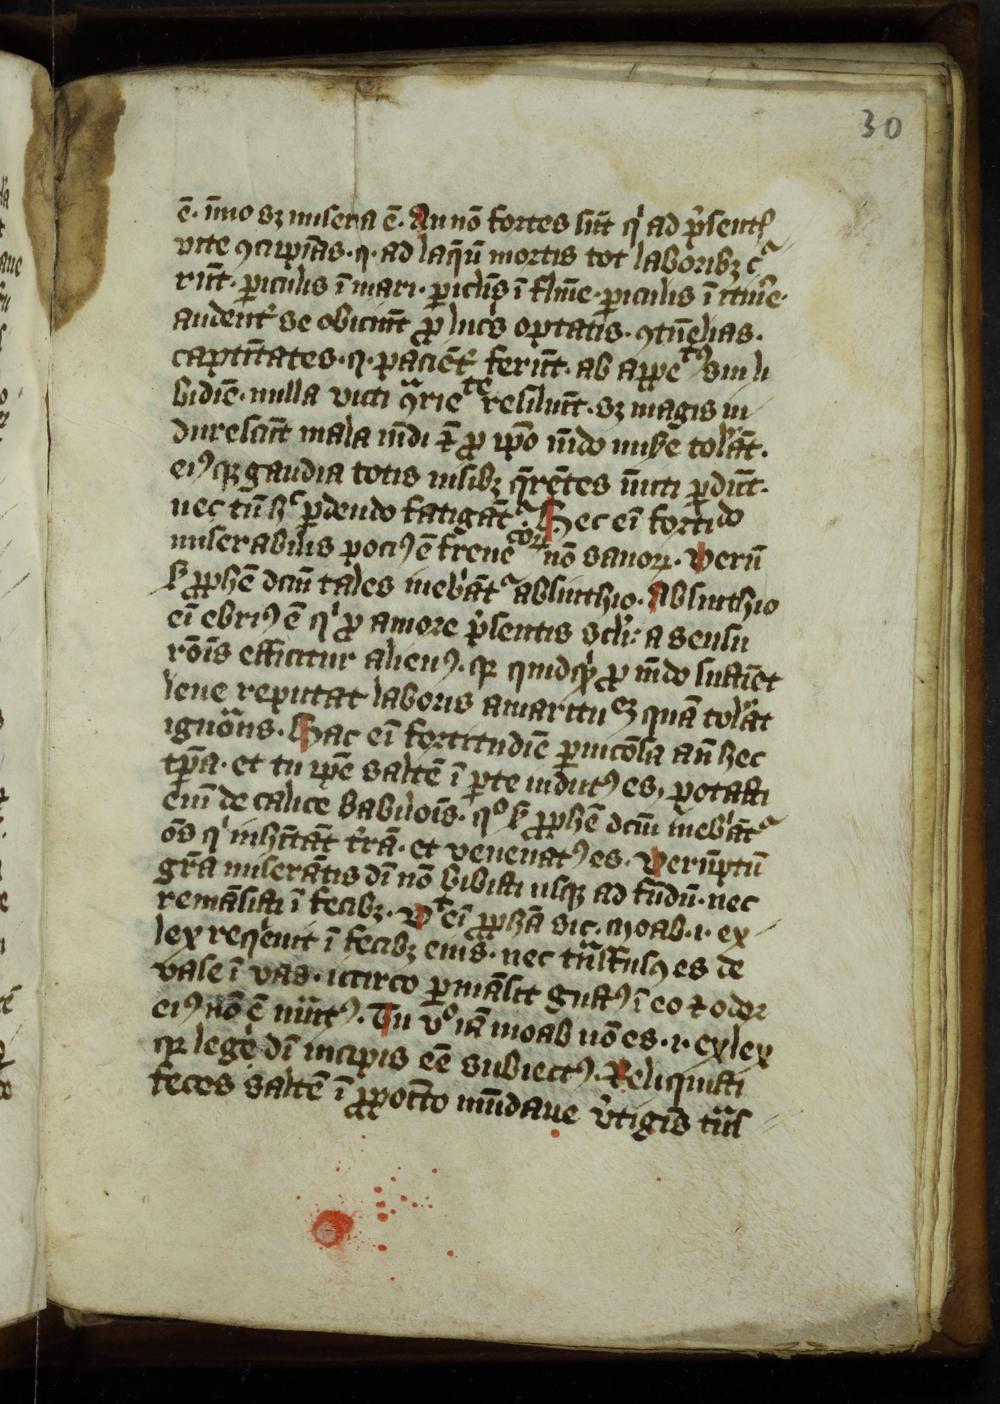 30
ē. īmo sꝫ misera ē. An nō fortes sūt qⁱ ad p̄sentꝭ
vite ꝯcupīas. ⁊. ad laq̄ū mortis tot laboribꝫ
rūt. ꝑiculis ī mari. ꝑiclīs ī flūīe. ꝑiculis ī itin̄e.
audent̄ se obiciūt ꝓ luc̄s optatis. ꝯtūelias.
captīitates. ⁊. pacīēt̄ ferūt. ab appetꝰ sui li
bidīe. nulla victi ꝯ̄rietate resiliūt. sꝫ magis in
durescūt mala mūdi ⁊ ꝓ ip̄o mūdo tolᵃ̄t.
eiꝰqꝫ gaudia totis nisibꝫ q̄rētes īuīti ꝑdūt.
nec tn̄ hͨ ꝑdendo fatigāt᷑. Hec eī fortᵈᵒ
miserabilis pociꝰ ē freneͨᵒꝝ nō sanoꝝ. Verū
ẜ ꝓph̄ē dcm̄ tales inebⁱāt᷑ absinthio. Absinthio
eī ebriꝰ ē qⁱ ꝓ amore p̄sentis scl̄i a sensu
rōīs efficitur alienꝰ. qꝛ quidqⁱd ꝓ mūdo sustīet
leue reputat laboris amaritu quā tolᵃ̄t
ignorās. Hac eī fortitudīe ꝑuicōla aīa hec
tp̄a. et tu ip̄e saltē ī ꝑte indutꝰ es, potasti
enī de calice babilōīs. qᵒ ẜ ꝓph̄ē dcm̄ inebⁱāt᷑
ōs qⁱ inhītāt t̄rā. et venenatꝰ es. Verūptn̄
gr̄a miserātis dī nō bibisti usqꝫ ad fūdū. nec
remāsisti ī fecibꝫ. Vᵗ eī ꝓph̄a dic̄. moab. i. ex
lex reqⁱeuit ī fecibꝫ suis. nec trāsfusꝰ es de
vase ī vas. iccirco ꝑmāsit gustꝰ ī eo ⁊ odor
eiꝰ nō ē mutꝰ. Tu vᵒ iā moab nō es. i. exlex
qꝛ legē dī incipis eē subiectꝰ. Reliquisti
feces saltē ī ꝓpōīto mūdane v̄tiginīs trāsf